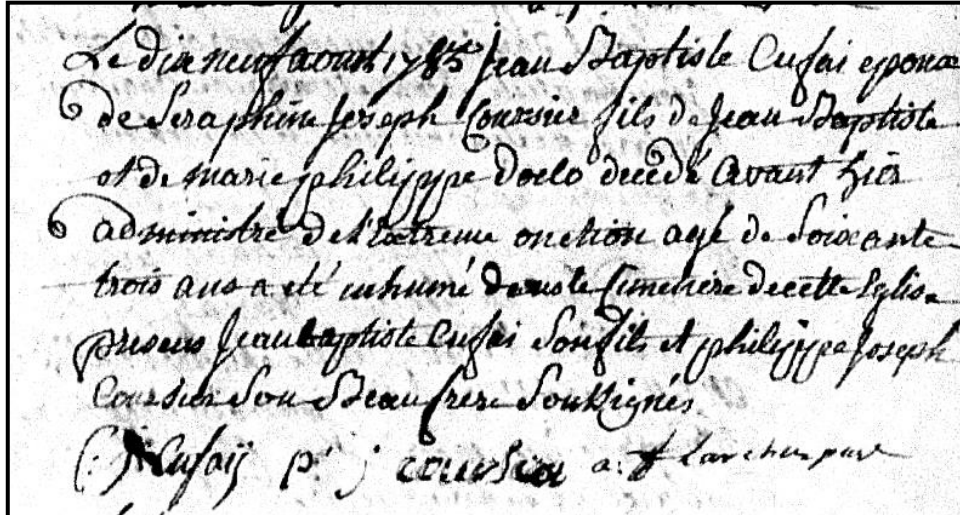 Le dix neuf aoust 1785 Jean Baptiste Cufai epoux
de Seraphine Joseph Coursier fils de Jean Baptiste
et de marie philippe doclo decédé avant hier
administré de l'extreme onction agé de Soixante
trois ans a été inhumé dans le Cimetiere de cette Eglise
presens Jean baptiste Cufai Son fils et philippe Joseph
Coursier Son Beau frere Soussignés
j Cufaÿ p. j coursier